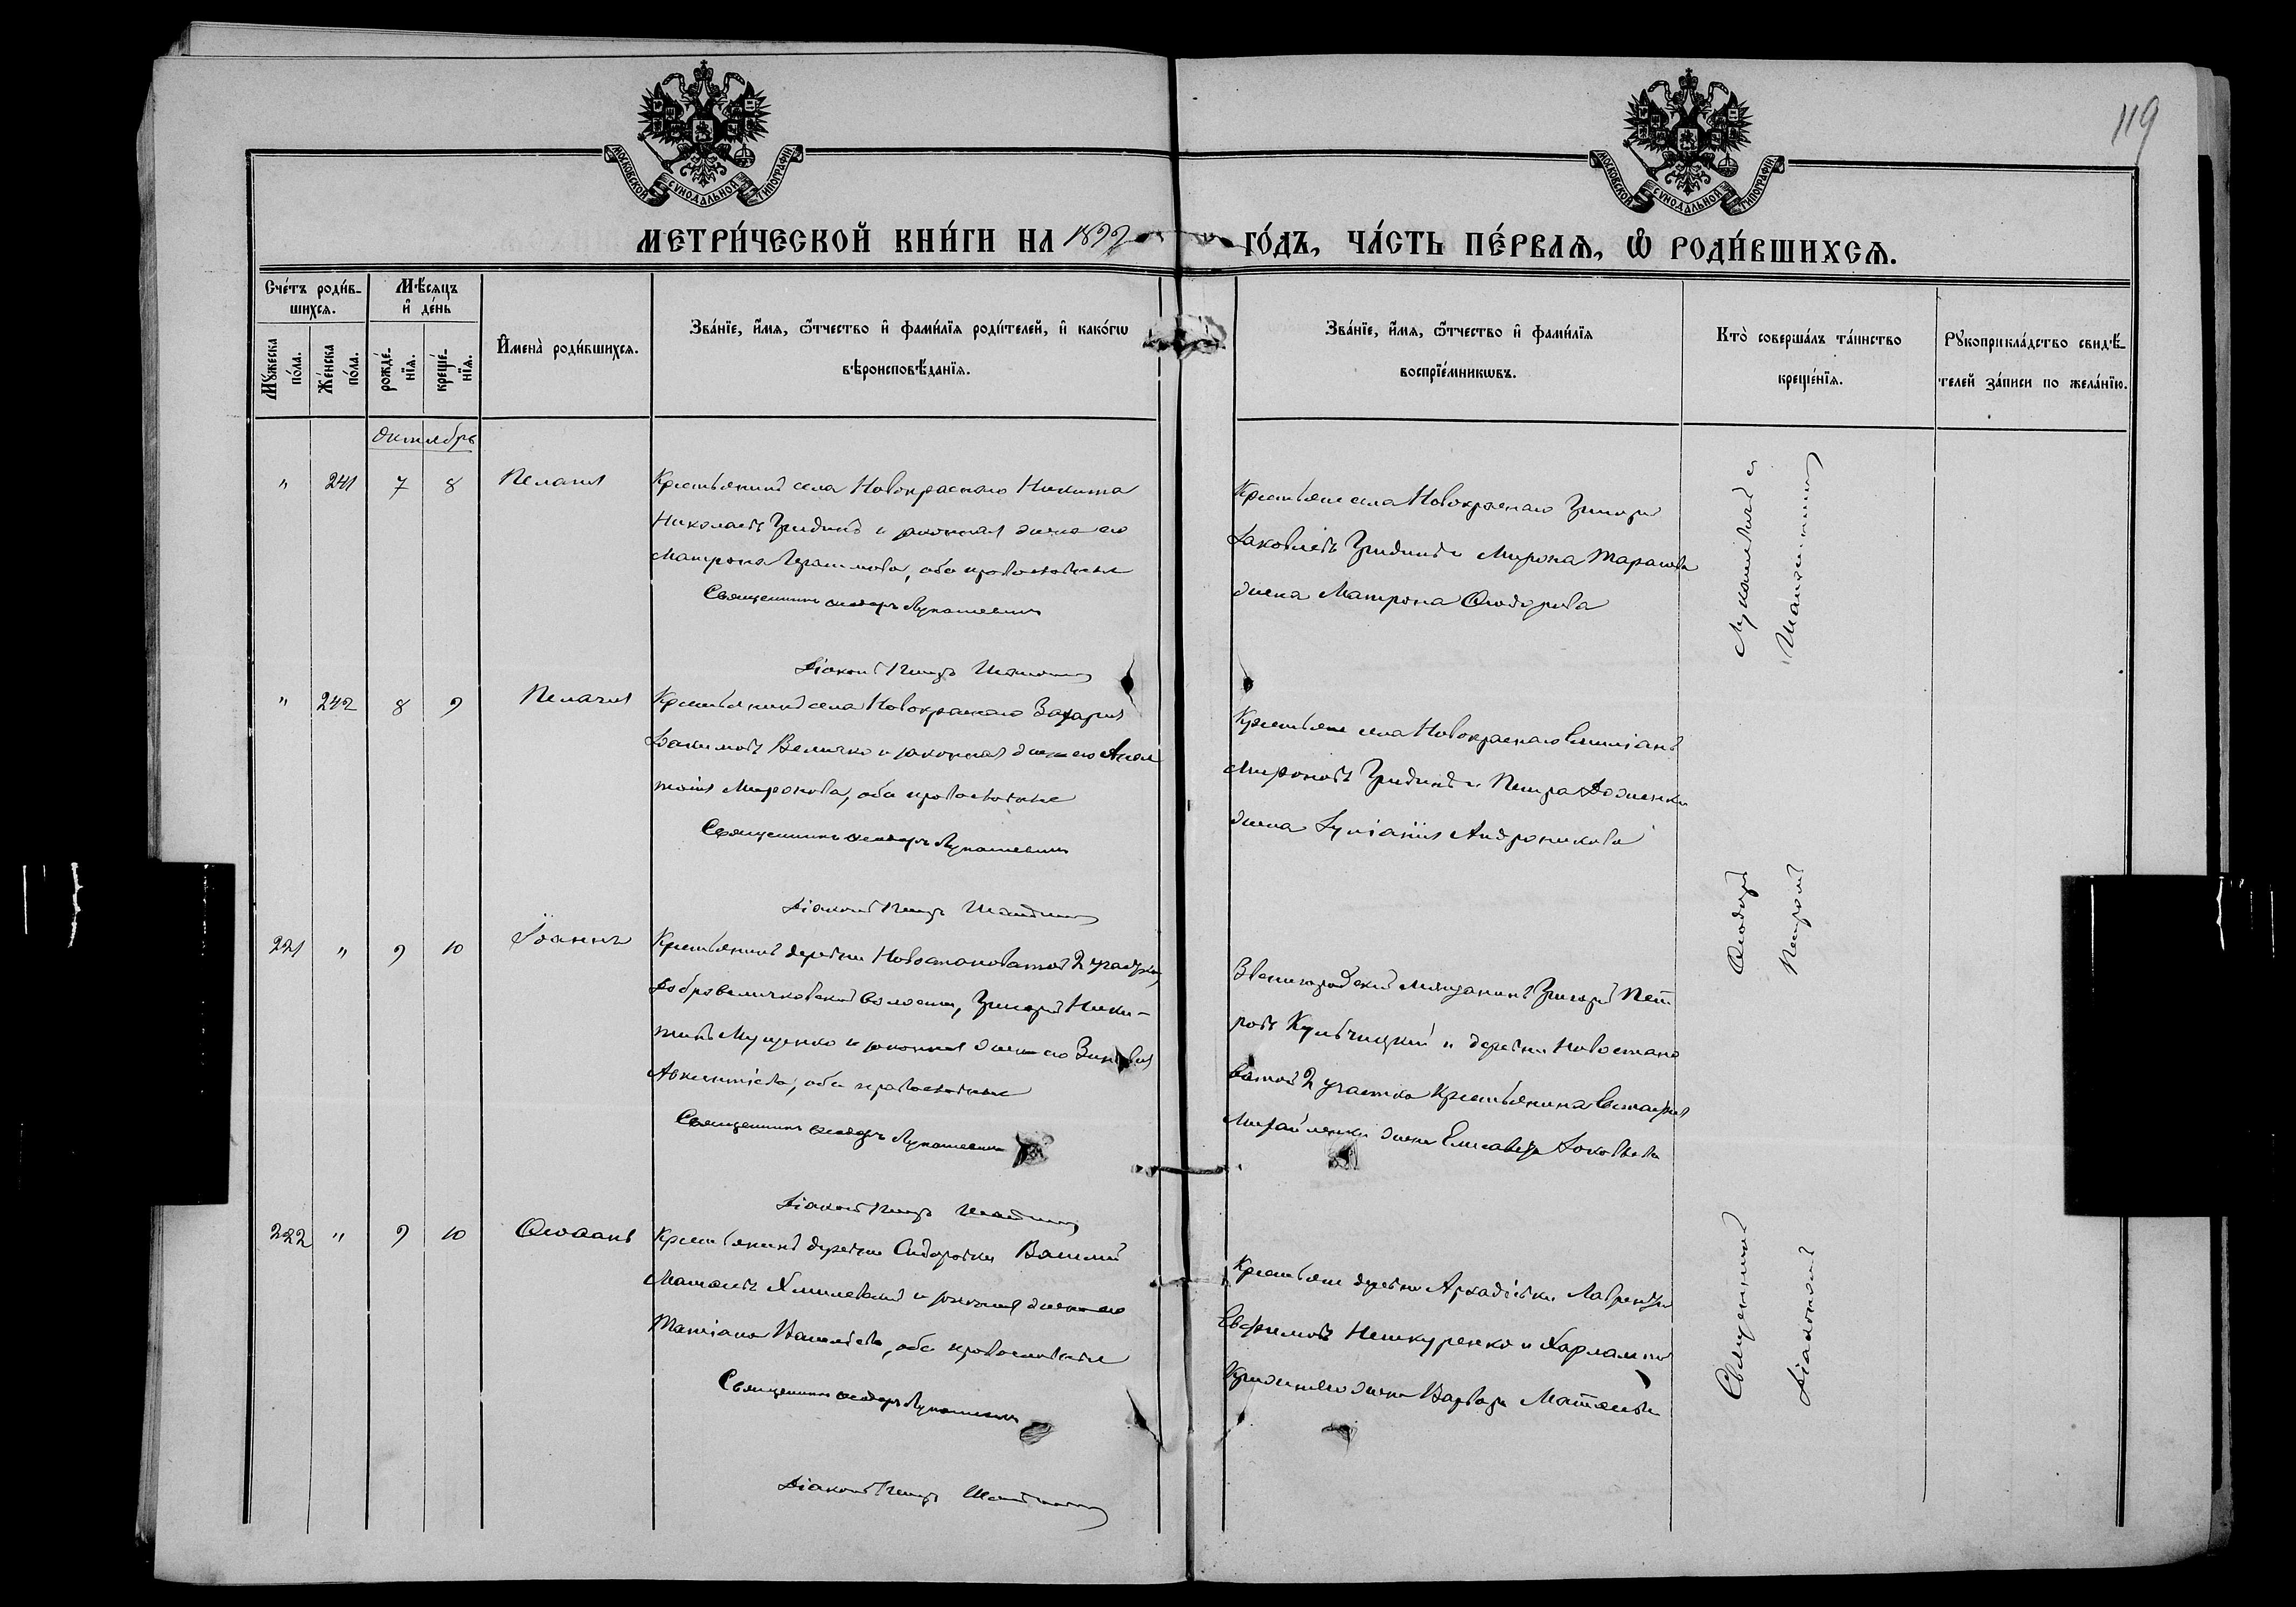 119
МОСКОВСКОЙ СѴНОДАЛЬНОЙ ТИПОГРАФІИ
МОСКОВСКОЙ СѴНОДАЛЬНОЙ ТИПОГРАФІИ
МЕТРИ́ЧЕСКОЙ КНИ́ГИ НА 1899 ГО́ДЪ, ЧА́СТЬ ПЕ́РВАѦ, Ѡ҆ РОДИ́ВШИХСѦ.
Сче́тъ роди́в-
шихсѧ.
Мꙋ́жеска по́ла.
Же́нска по́ла.
Мѣ́сѧцъ и҆ де́нь
рожде́-нїѧ.
креще́-нїѧ.
И҆мена̀ роди́вшихсѧ.
Зва́нїе, и҆́мѧ, ѻ҆́тчество и҆ фами́лїѧ роди́телей, и҆ како́гѡ
вѣроисповѣ́данїѧ.
Зва́нїе, и҆́мѧ, ѻ҆́тчество и҆ фами́лїѧ
воспрїе́мникѡвъ.
Кто̀ соверша́лъ та́инство
креще́нїѧ.
Рꙋкоприкла́дство свидѣ́-
телей за́писи по жела́нїю.
Октябрь
" 241 7 8 Пелагія
Крестьянинъ села Новокраснаго Никита
Николаевъ Гридинъ и законная жена его
Матрона Герасимова, оба православные
Священникъ Ѳеодоръ Лукашевичъ
Діаконъ Петръ
Крестьяне села Новокраснаго Григорій
Іаковлевъ Гридинъ и Мирона Тарасова
жена Матрона Ѳеодорова
" 242 8 9 Пелагія
Крестьянинъ села Новокраснаго Захарія
Іоакимовъ Величко и законная жена его
Миронова, оба православные
Священникъ Ѳеодоръ Лукашевичъ
Діаконъ Петръ
Крестьяне села Новокраснаго Емиліанъ
Мироновъ Гридинъ и Петра
жена Іуліанія Андроникова
221 " 9 10 Іоаннъ
Крестьянинъ деревни Новостановатой 2 участка,
Добровеличковской волости, Григорій Ники-
тинъ Мущенко и законная жена его Зиновія
Авксентіева, оба православные
Священникъ Ѳеодоръ Лукашевичъ
Діаконъ Петръ
Звенигородскій мѣщанинъ Григорій Пет
ровъ Кульчицкій и деревни Новостано
ватой 2 участка крестьянина Евстафія
Михайленки жена Елисавета Іаковлева
222 " 9 10 Ѳеофанъ
Крестьянинъ деревни Сидоровки Василій
Матѳеевъ Хмилевскій и законная жена его
Татіана Василіева, оба православные
Священникъ Ѳеодоръ Лукашевичъ
Діаконъ Петръ
Крестьяне деревни Аркадіевки Лаврентій
Евфимовъ Нешкуренко и Харлампія
жена Варвара Матѳеева
Священникъ Ѳеодоръ Лукашевичъ и
Діаконъ Петръ